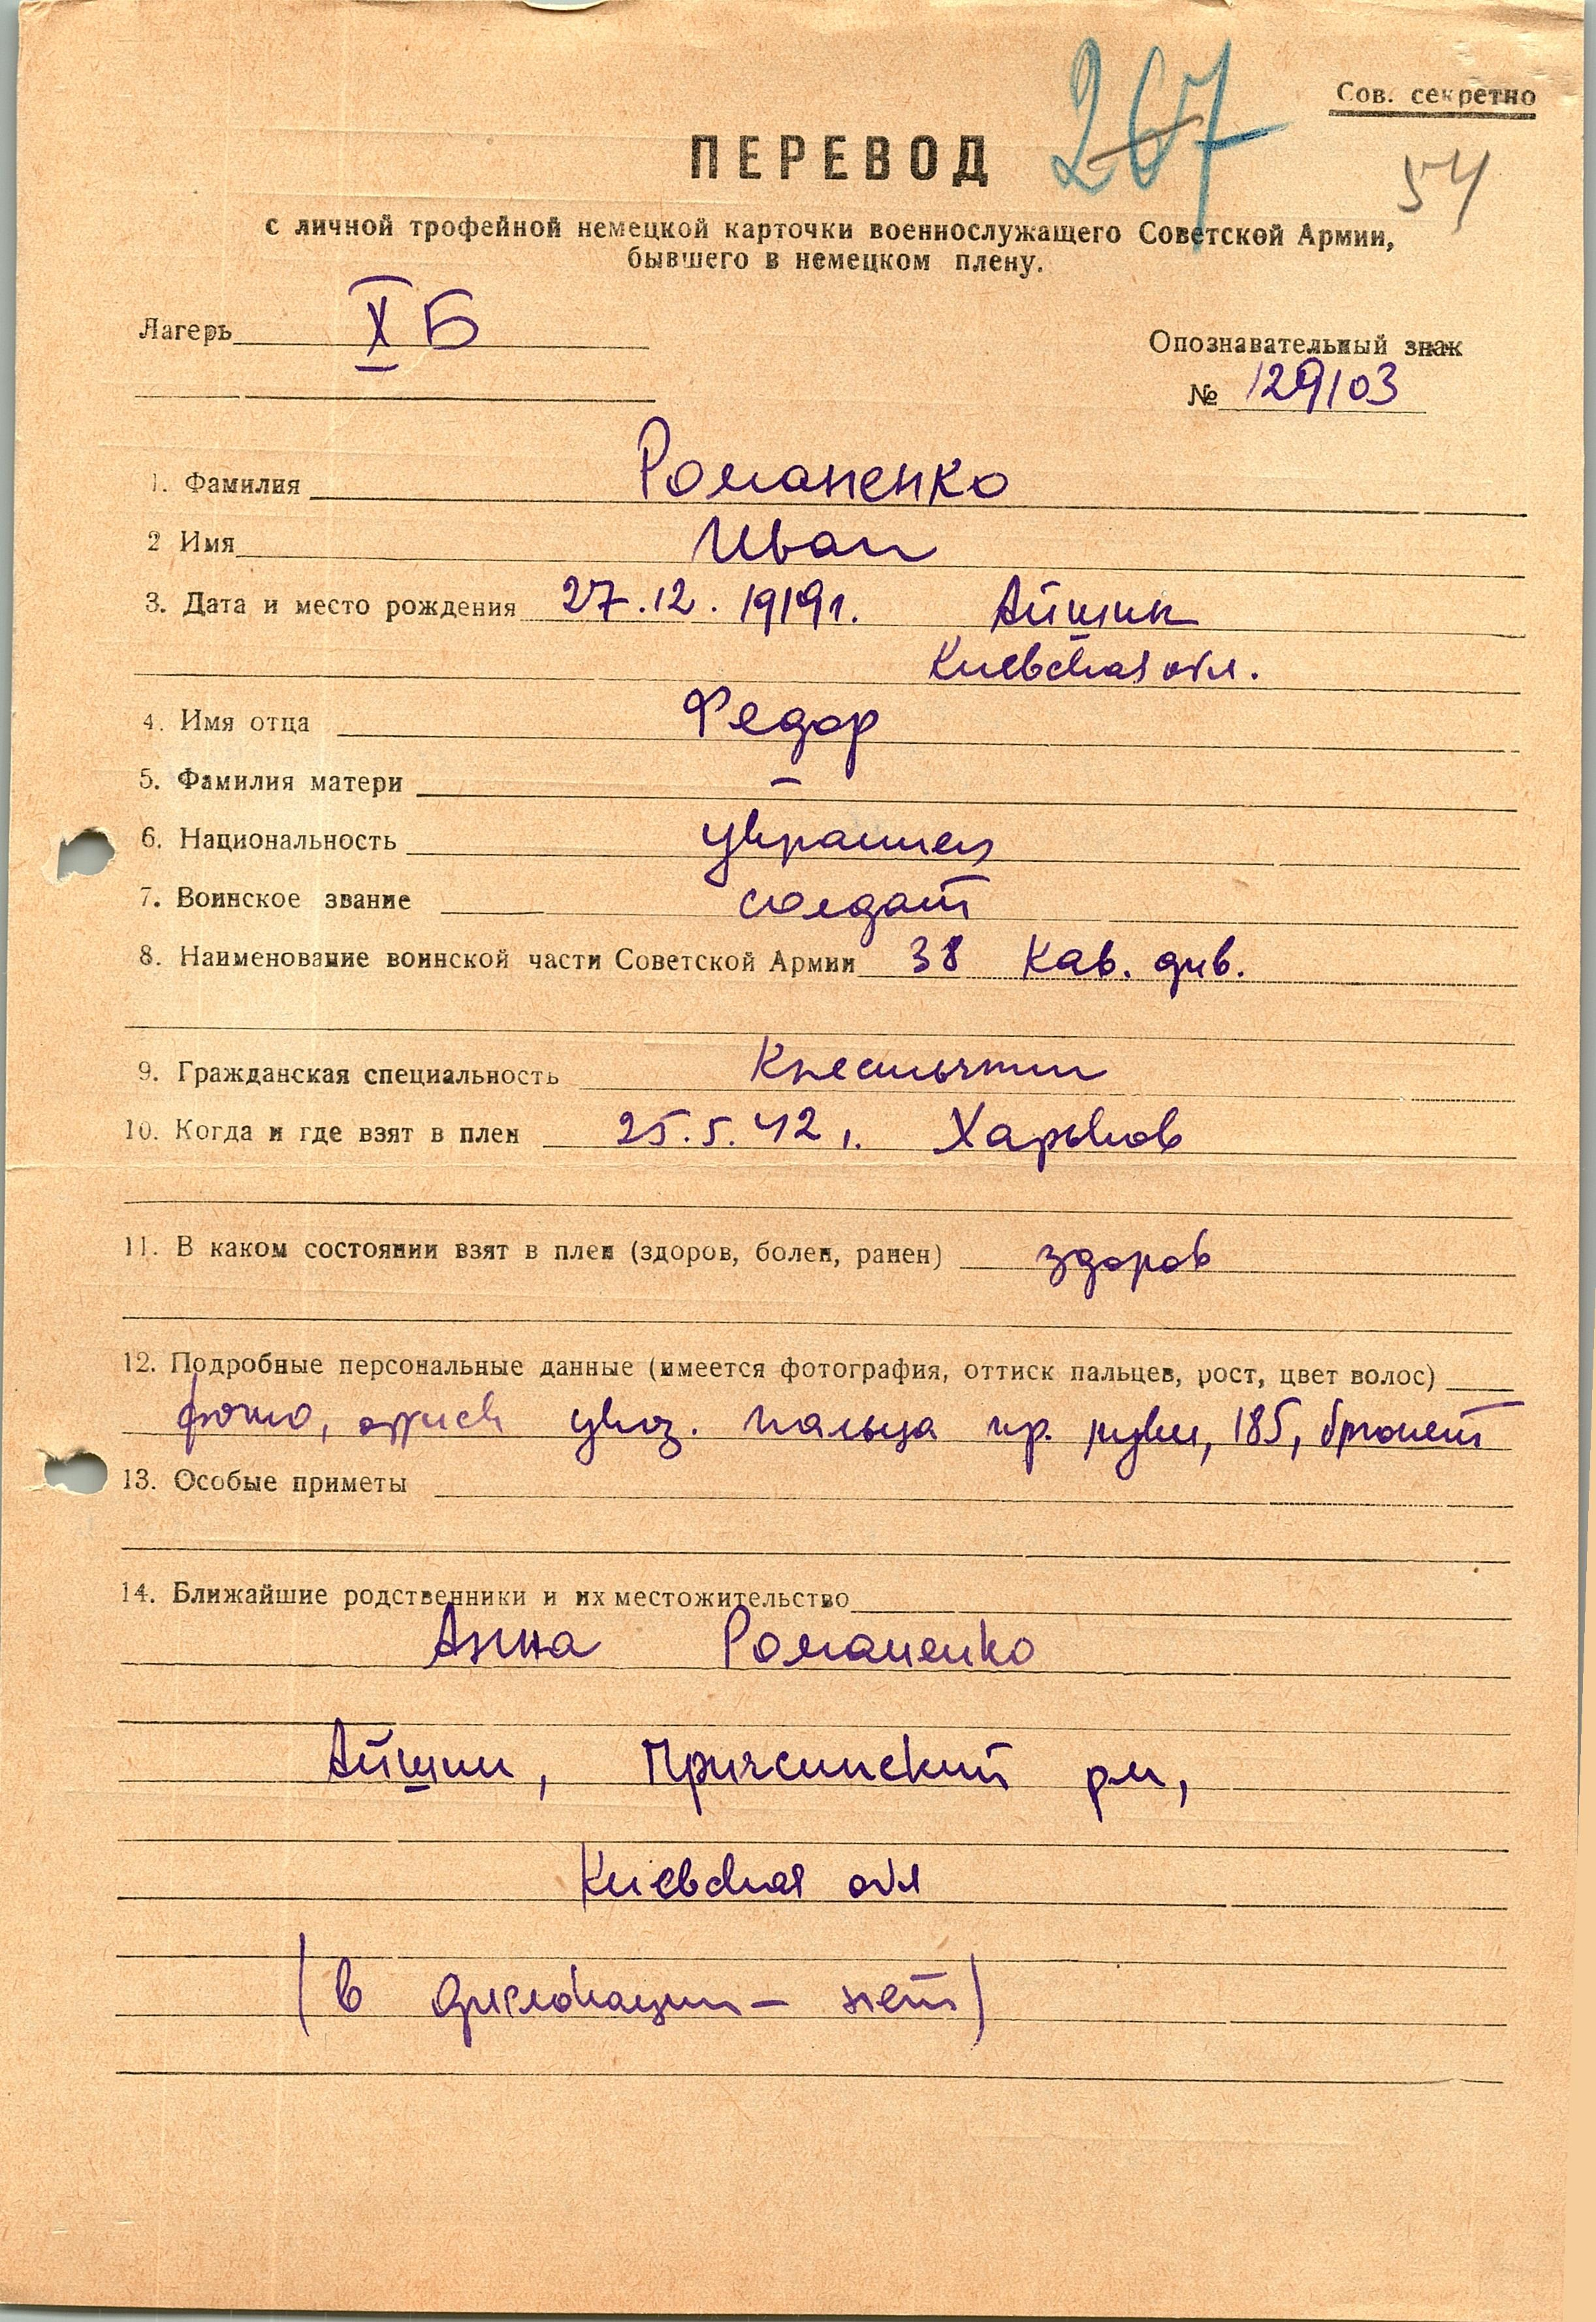 267
Сов. секретно
ПЕРЕВОД
54
с личной трофейной немецкой карточки военнослужащего Советской Армии,
бывшего в немецком плену.
Лагерь X Б
Опознавательный знак
№ 129103
1. Фамилия Романенко
2 Имя Иван
3. Дата и место рождения 27.12.1919г.
Киевская обл.
4. Имя отца Федор
5. Фамилия матери —
6. Национальность украинец
7. Воинское звание солдат
8. Наименование воинской части Советской Армии 38 кав. див.
9. Гражданская специальность Крестьянин
10. Когда и где взят в плен 25.5.42 г. Харьков
11. В каком состоянии взят в плен (здоров, болен, ранен) здоров
12. Подробные персональные данные (имеется фотография, оттиск пальцев, рост, цвет волос)
фото, оттиск указ. пальца пр. руки, 185, брюнет
13. Особые приметы
14. Ближайшие родственники и их местожительство
Анна Романенко
рн,
Киевская обл
(в дислокации — нет)